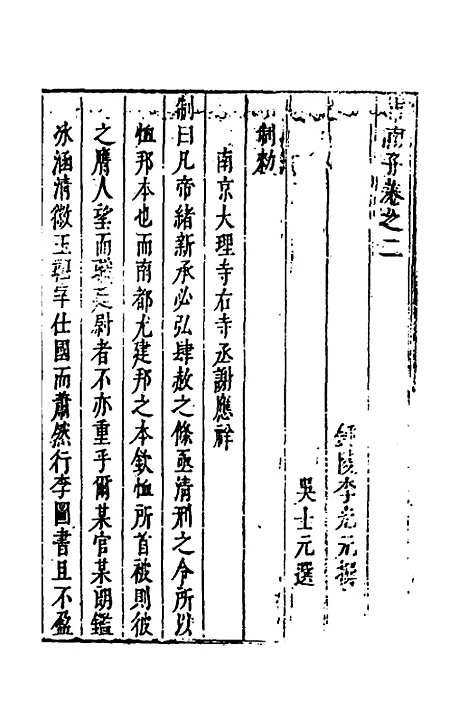 市南子卷之二
鍾陵李光元撰
吳士元選
制勅
南京大理寺右寺丞謝應祥
制曰凡帝緒新承必弘肆赦之條亟清刑之令所以
恤邦本也而南都尤建邦之本欽恤所首被則彼
之膺人望而廷尉者不亦重乎爾某官某朗鑑
冰涵清徽玉宰仕國而蕭然行李圖書且不盈